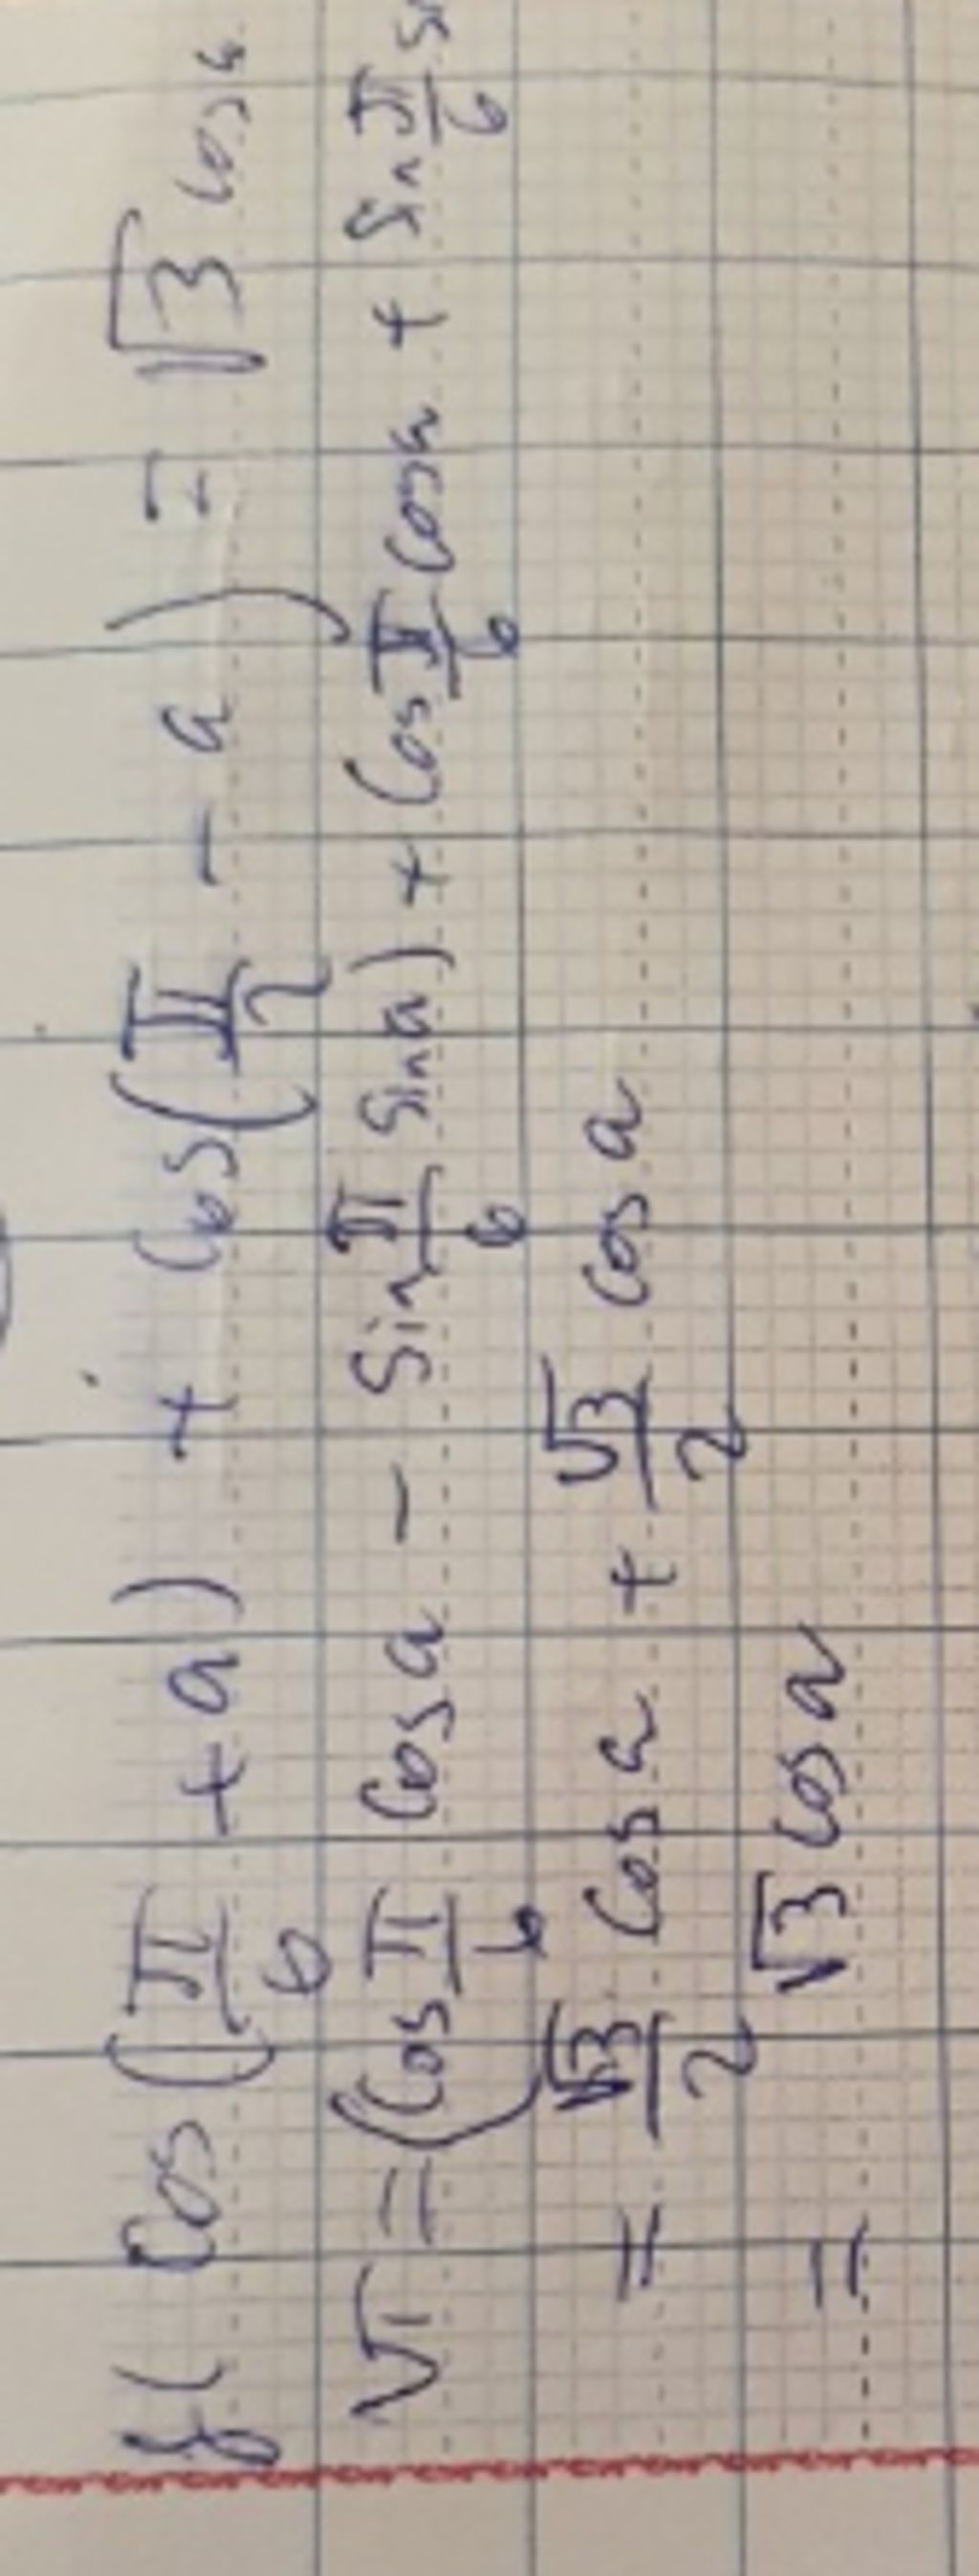 b( cos(π/6 + a) + cos(π/2 - a) = √3 cos a
VT = (cos π/6 cos a - sin π/6 sin a) + cos π/6 cos a + sin π/6
= √3/2 cos a + √3/2 cos a
= √3 cos a